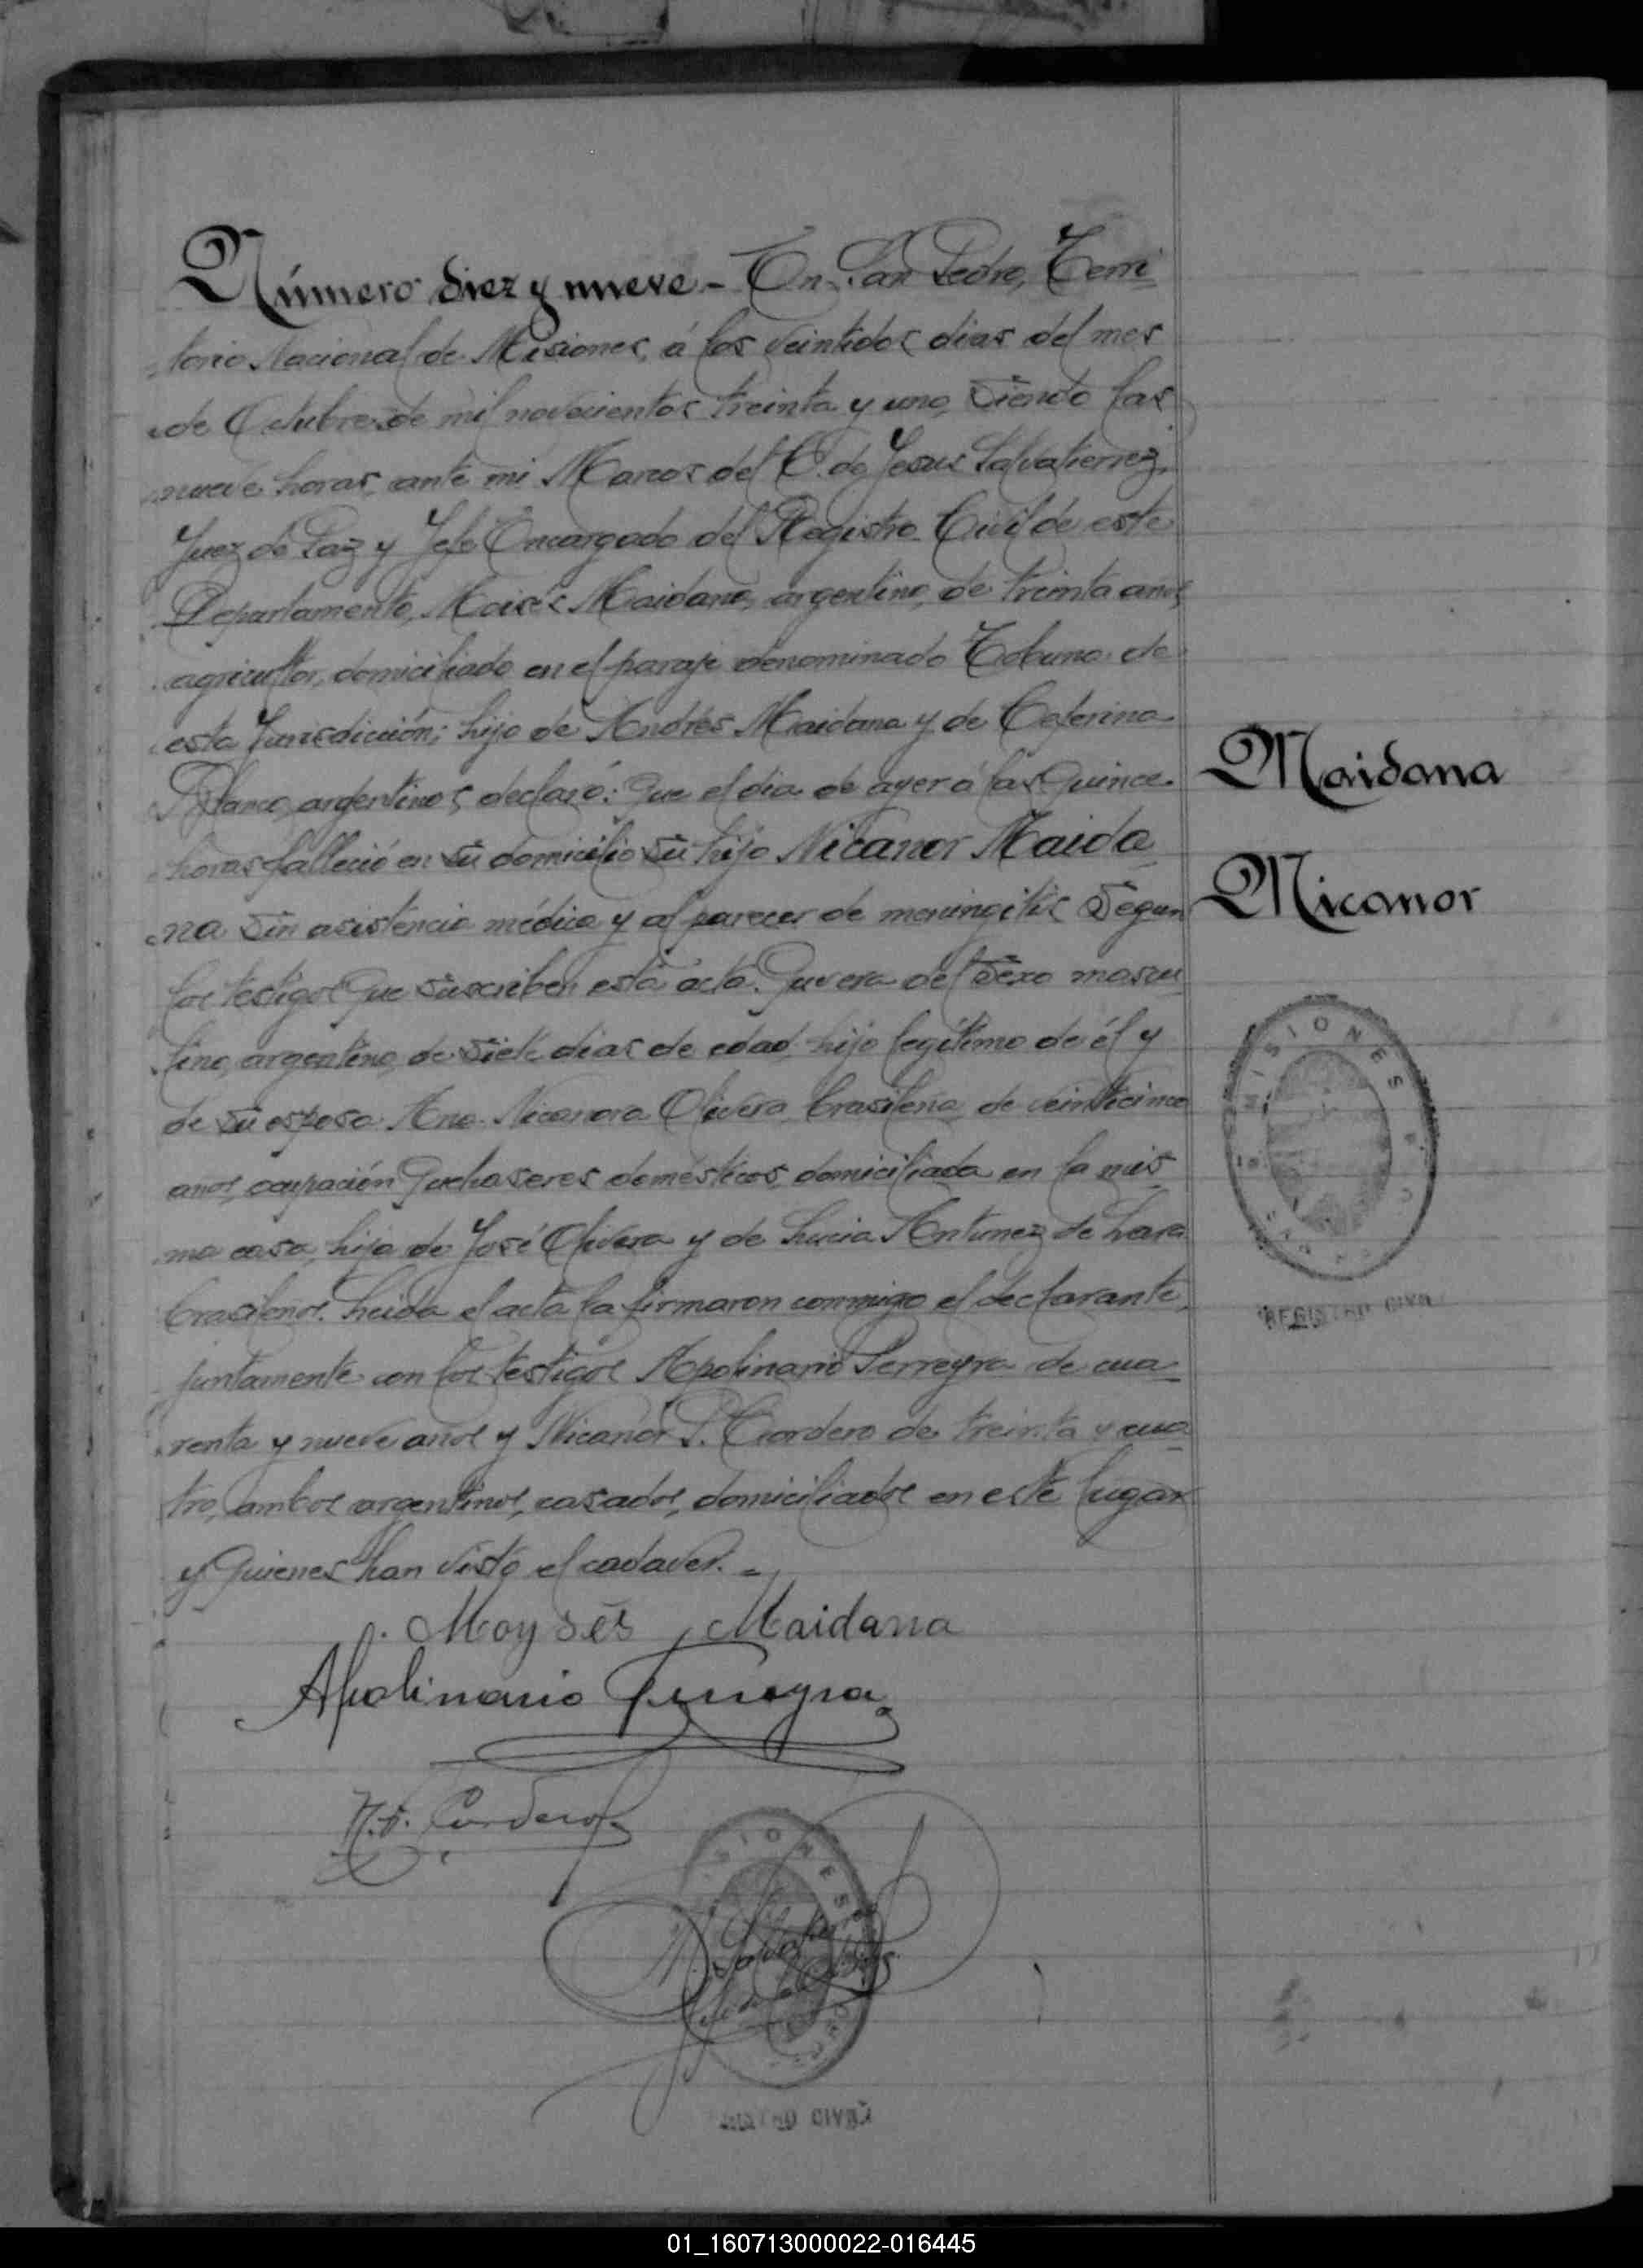 Número diez y nueve - En San Pedro, Terri
torio Nacional de Misiones, á los veintidos dias del mes
de Octubre de mil novecientos treinta y uno, siendo las
nueve horas, ante mi Marcos del C. de Jesus Salvatierrez,
Juez de Paz y Jefe Encargado del Registro Civil de este
Departamento, Moisés Maidana, argentino, de treinta años
agricultor, domiciliado en el paraje denominado Tobuna de
esta Jurisdicción; hijo de Andrés Maidana y de Ceferina
Blanco, argentinos, declaró: Que el dia de ayer á las quince
horas falleció en su domicilio su hijo Nicanor Maida
na sin asistencia médica y al parecer de meningitis segun
los testigos que suscriben esta acta. Que era del sexo mascu
lino, argentino, de siete dias de edad, hijo legítimo de él y
de su esposa Ana Nicanora Olivera brasileña de veinticinco
años ocupación quehaseres domésticos, domiciliada en la mis
ma casa, hija de José Olivera y de Lucia Antunez de Lara
brasileños. Leida el acta la firmaron conmigo el declarante,
juntamente con los testigos Apolinario Ferreyra de cua
renta y nueve años y Nicanor P. Cordero de treinta y cua
tro, ambos argentinos, casados, domiciliados en este lugar
y quienes han visto el cadaver. =
Moysés Maidana
Apolinario Ferreyra
N.P. Cordero
Maidana
Nicanor
MISIONES
REGISTRO CIVIL
01_160713000022-016445